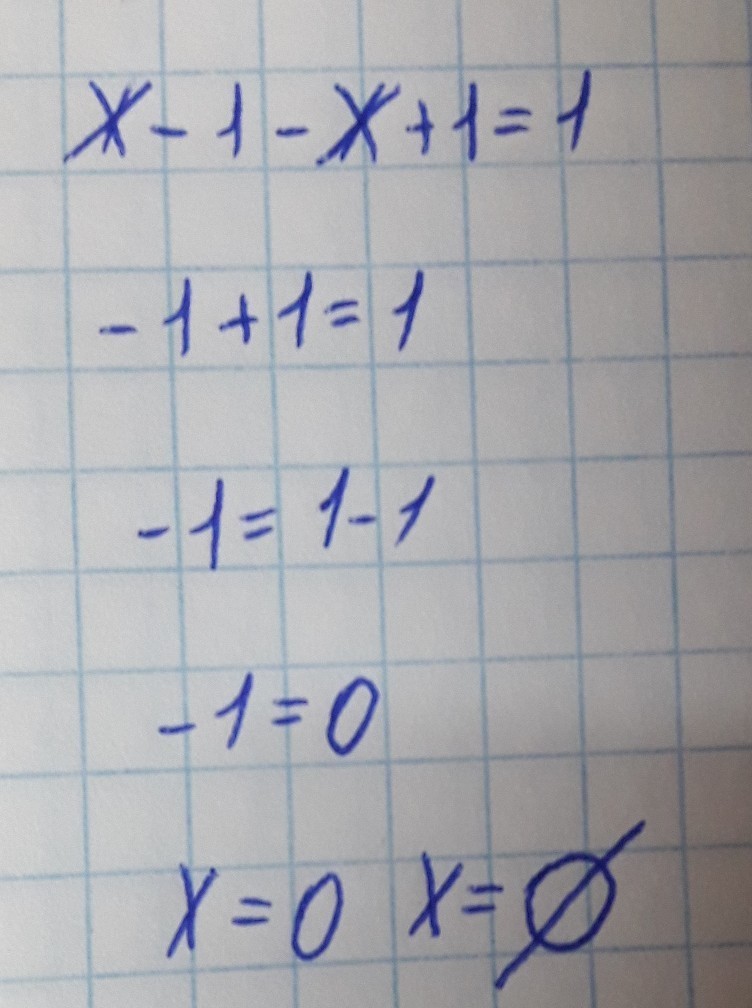 x - 1 - x + 1 = 1
- 1 + 1 = 1
- 1 = 1 - 1
- 1 = 0
x = 0 x = ∅